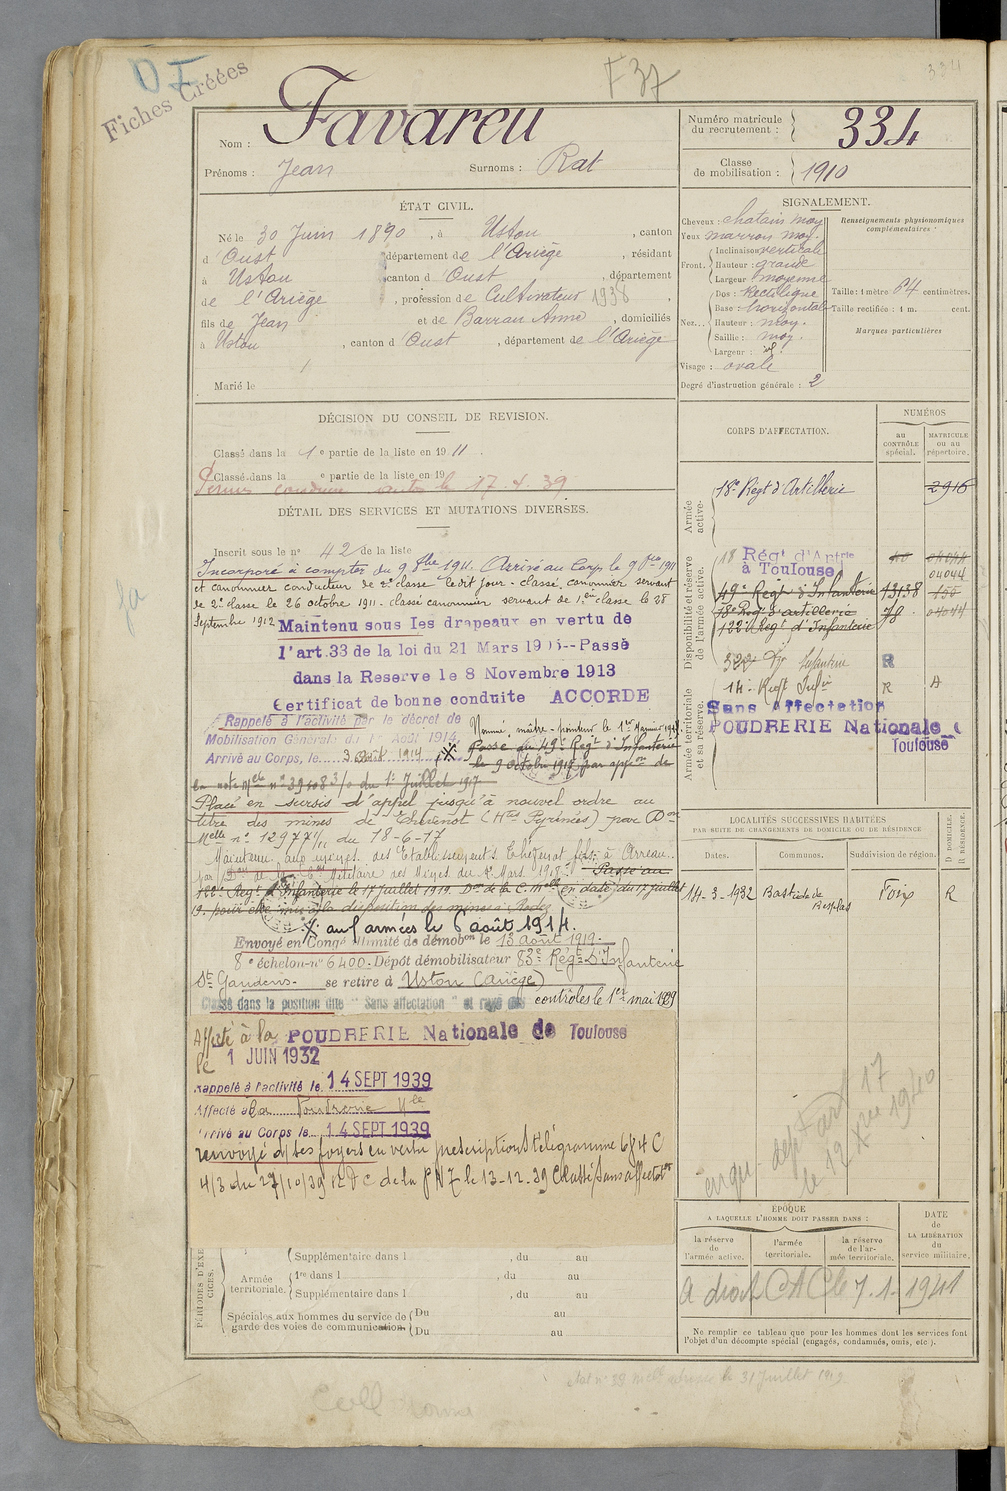 334
F 37
Fiches Créées
Nom : Favareu
Prénoms : Jean Surnoms : Rat
Numéro matricule du recrutement : 334
Classe de mobilisation : 1910
ÉTAT CIVIL.
Né le 30 Juin 1890, à Ustou, canton
d'Oust, département de l'Ariège, résidant
à Ustou canton d'Oust, département
de l'Ariège, profession de Cultivateur 1938,
fils de Jean et de Barrau Anne, domiciliés
à Ustou, canton d'Oust, département de l'Ariège
Marié le
SIGNALEMENT.
Cheveux : chatain moy
Yeux marron moy.
Front. Inclinaison verticale
Hauteur : grande
Largeur moyenne
Nez... Dos : Rectiligne
Base : horizontale
Hauteur : moy.
Saillie : moy.
Largeur :
Visage : ovale
Degré d'instruction générale : 2
Renseignements physionomiques complémentaires :
Taille : 1 mètre 64 centimètres.
Taille rectifiée : 1 m. cent.
Marques particulières
DÉCISION DU CONSEIL DE REVISION.
Classé dans la 1e partie de la liste en 1911.
Classé dans la e partie de la liste en 19
Permis conduire auto le 17.4.39
DÉTAIL DES SERVICES ET MUTATIONS DIVERSES.
Inscrit sous le no 42 de la liste
Incorporé à compter du 9 8bre 1911. Arrivé au Corps le 9 8bre 1911
et canonnier conducteur de 2e classe ledit jour - classé canonnier servant
de 2e classe le 26 octobre 1911 - classé canonnier servant de 1ère classe le 28
Septembre 1912 Maintenu sous les drapeaux en vertu de
l'art.33 de la loi du 21 Mars 1905--Passé
dans la Reserve le 8 Novembre 1913
Certificat de bonne conduite ACCORDE
Rappelé à l'activité par le décret de
Mobilisation Générale du 1er Août 1914.
Arrivé au Corps, le 3 Août 1914
Nommé maître-pointeur le 1er Janvier
Passé au 49e Regt d'Infanterie
le 9 octobre 1917 par appon de
la note Melle no 39408 3/0 du 1er Juillet 1917
Placé en sursis d'appel jusqu'à nouvel ordre au
titre des mines de Thevenot (Htes Pyrénées) par Don
Melle no 12977 du 18-6-17
Maintenu aux usines des Etablissements Thevenot à Arreau.
Passé au
122e Regt d'Infanterie le 17 juillet 1919. Don de la C. Melle en date du 17 juillet
19. pour être mis à la disposition des mines à Rodez
X aux armées le 6 août 1914.
Envoyé en Congé illimité de démobon le 13 Août 1919.
8e échelon no 6400 - Dépôt démobilisateur 83e Régt D'Infanterie
St Gaudens - se retire à Ustou (Ariège)
Classé dans la position dite "Sans affectation" et rayé des contrôles le 1er mai 1929
Affecté à la POUDRERIE Nationale de Toulouse
le 1 JUIN 1932
Rappelé à l'activité le 14 SEPT 1939
Affecté à la Poudrerie Nle
Arrivé au Corps le 14 SEPT 1939
renvoyé ds ses foyers en vertu prescriptions télégramme 684 C
4/3 du 27/10/39 le 13-12-39 Classé sans affectation
CORPS D'AFFECTATION.
NUMÉROS
au CONTRÔLE spécial.
MATRICULE ou au répertoire.
Armée active.
18e Regt d'Artillerie 2916
Disponibilité et réserve de l'armée active.
18 Régt d'Artrie à Toulouse 04044
49e Regt d'Infanterie 13138
18e Regt d'artillerie 78 04044
122e Regt d'Infanterie
Infanterie R
14e Regt Infie R A
Armée territoriale et sa réserve.
Sans Affectation
POUDRERIE Nationale
Toulouse
LOCALITÉS SUCCESSIVES HABITÉES
PAR SUITE DE CHANGEMENTS DE DOMICILE OU DE RÉSIDENCE
Dates. Communes. Subdivision de région. D DOMICILE. R RÉSIDENCE.
14-3-1932 Bastide de Besplas Foix R
art 17
le 12 Xbre 1940
ÉPOQUE
A LAQUELLE L'HOMME DOIT PASSER DANS :
la réserve de l'armée active.
l'armée territoriale.
la réserve de l'armée territoriale.
DATE de LA LIBÉRATION du service militaire.
A droit CAC le 7-1-1941
Ne remplir ce tableau que pour les hommes dont les services font
l'objet d'un décompte spécial (engagés, condamnés, omis, etc.).
PÉRIODES D'EXERCICES.
Supplémentaire dans l , du au
Armée territoriale. 1re dans l , du au
Supplémentaire dans l , du au
Spéciales aux hommes du service de garde des voies de communication Du au
Du au